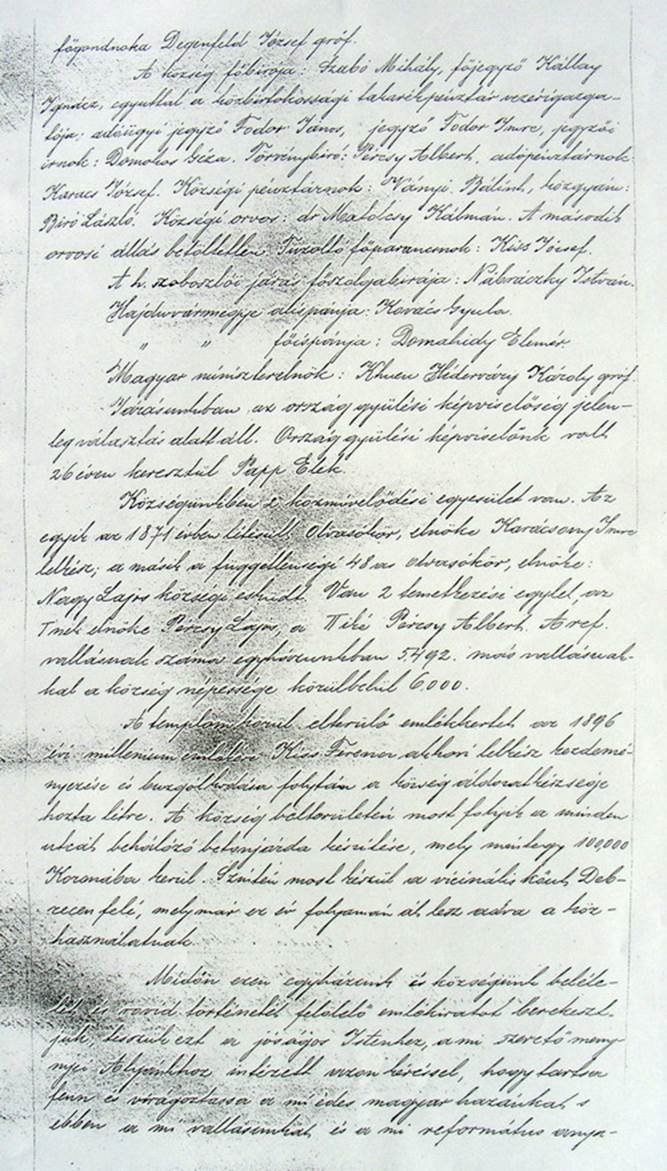 főgondnoka Degenfeld József gróf.
A község főbirója: Szabó Mihály, főjegyző Kállay
Ignácz, egyuttal a közbirtokossági takarékpénztár vezérigazga-
tója; adóügyi jegyző Fodor János, jegyző Fodor Imre, jegyzői
irnok: Domokos Géza. Törvénybiró: Pércsy Albert, adópénztárnok:
Karacs József. Községi pénztárnok: Ványi Bálint, közgyám:
Biró László. Községi orvos: dr Matolcsy Kálmán. A második
orvosi állás betöltetlen. Tüzoltó főparancsnok: Kiss József.
A h. szoboszlói járás főszolgabirája: Nábráczky István.
Hajduvármegye alispánja: Kovács Gyula.
" " főispánja: Domahidy Elemér.
Magyar miniszterelnök: Khuen Héderváry Károly gróf.
Járásunkban az ország gyülési képviselőség jelen-
leg választás alatt áll. Ország gyülési képviselőnk volt
26 éven keresztül Papp Elek.
Községünkben 2 közmivelődési egyesület van. Az
egyik az 1871 évben létesült Olvasókör, elnöke Karácsony Imre
lelkész; a másik a függetlenségi 48 as olvasókör, elnöke:
Nagy Lajos községi esküdt. Van 2 temetkezési egylet, az
I nek elnöke Pércsy Lajos, a II iké Pércsy Albert. A ref.
vallásuak száma egyházunkban 5492. más vallásuak-
kal a község népessége körülbelül 6,000.
A templom körül elterülő emlékkertet az 1896
évi millenium emlékére Kiss Ferencz akkori lelkész kezdemé-
nyezése és buzgolkodása folytán a község áldozatkészsége
hozta létre. A község belterületén most folyik a minden
utcát behálózó betonjárda készitése, mely mintegy 100,000
Koronába kerül. Szintén most készül a vicinális kőut Deb-
recen felé, mely már ez év folyamán át lesz adva a köz-
használatnak.
Midőn ezen egyházunk és községünk beléle-
tét és rövid történetét felölelő emlékiratot berekeszt-
jük, tesszük ezt a jóságos Istenhez, a mi szerető meny-
nyei Atyánkhoz intézett azon kéréssel, hogy tartsa
fenn és virágoztassa a mi édes magyar hazánkat s
ebben a mi vallásunkat és a mi református anya-